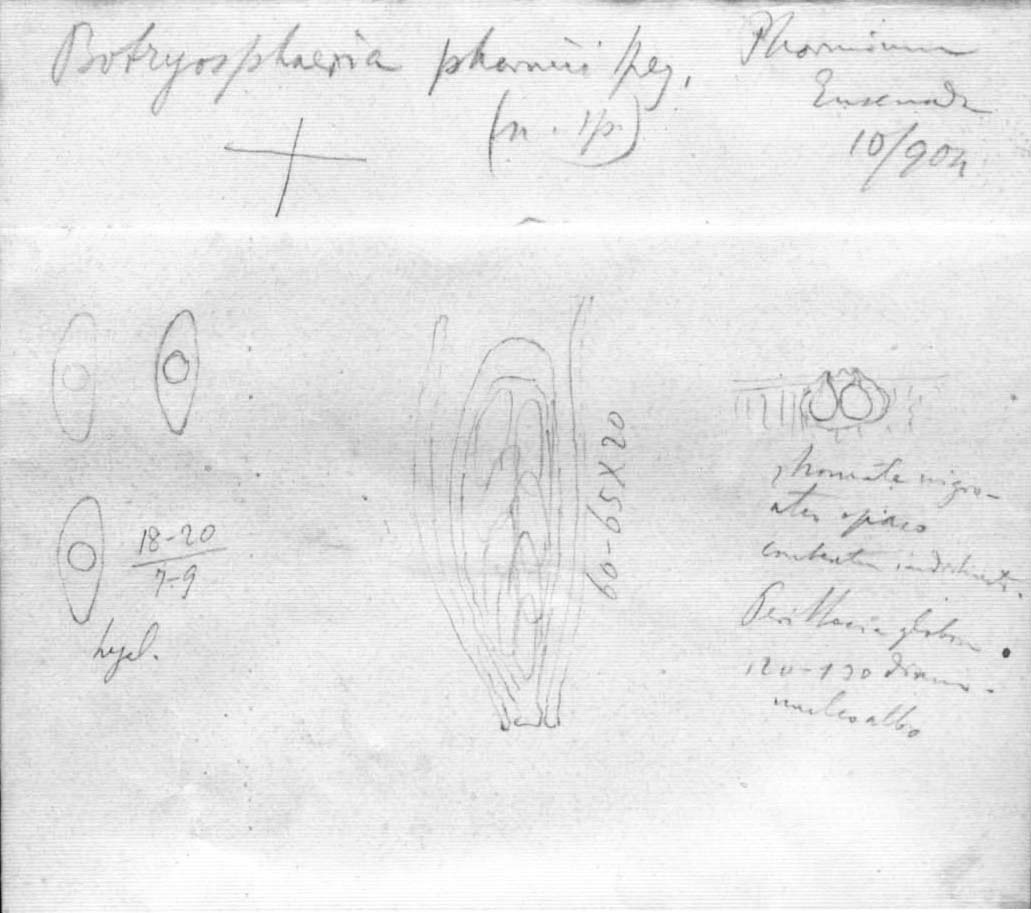 Botryosphaeria phormii Speg.
(n. sp.)
Phormium
Ensenada
10/904
18-20
7-9
hyal.
60-65 X 20
nigro-
atro opaco
Perithecia globosa
120-130 diam.
nucleo albo